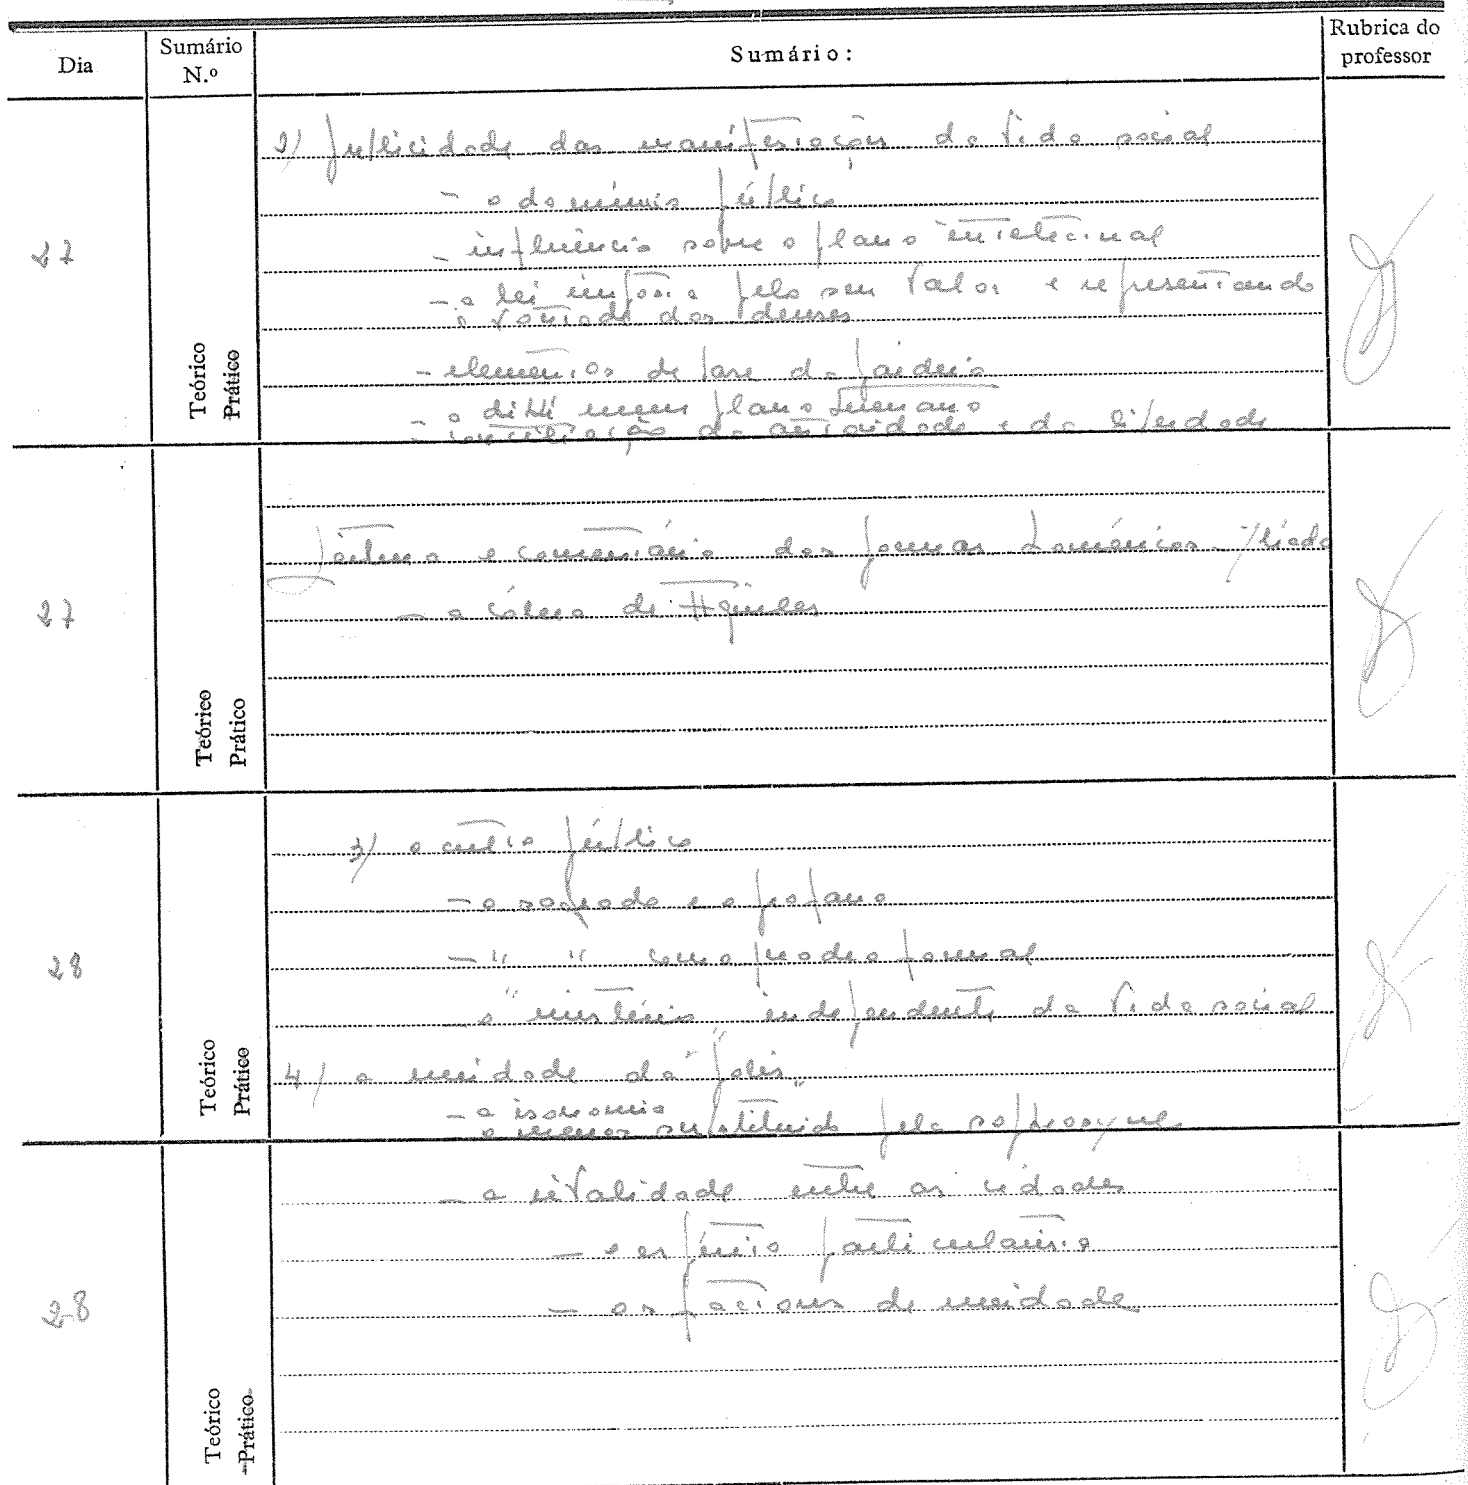 Dia
Sumário N.º
Sumário:
Rubrica do professor
27
Teórico
Prático
2) publicidade das manifestações da vida social
- o domínio público
- influência sobre o plano intelectual
- a lei imposta pelo seu valor e representando
a vontade dos deuses
- elementos de base da paideia
- a diké num plano humano
- conciliação da autoridade e da liberdade
27
Teórico
Prático
Leitura e comentário dos poemas homéricos - Ilíada
- a cólera de Aquiles
28
Teórico
Prático
3) o culto público
- o sagrado e o profano
- " " como
- o "mistério" independente da vida social
4) a unidade da "polis"
- a isonomia
substituído pela sophrosyne
28
Teórico
Prático
- a rivalidade entre as cidades
- o espírito particularista
- os factores de unidade